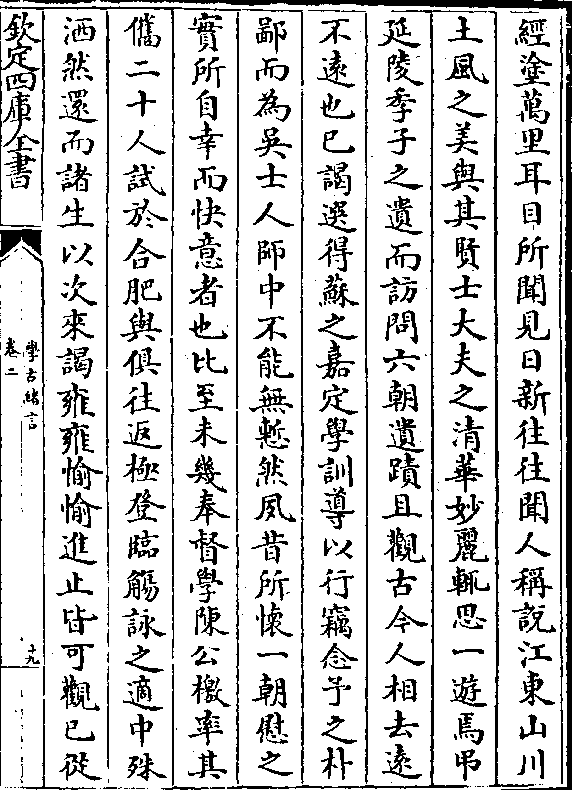 經塗萬里耳目所聞見日新往往聞人稱說江東山川
土風之美與其賢士大夫之清華妙麗輒思一遊焉弔
延陵季子之遺而訪問六朝遺蹟且觀古今人相去遠
不遠也已謁選得蘇之嘉定學訓導以行竊念予之朴
鄙而為吳士人師中不能無慙然夙昔所懷一朝慰之
實所自幸而快意者也比至未幾奉督學陳公檄率其
儁二十人試於合肥與俱往返極登臨觴詠之適中殊
洒然還而諸生以次來謁雍雍愉愉進止皆可觀已從
欽定四庫全書
學古緒言
卷二
十九